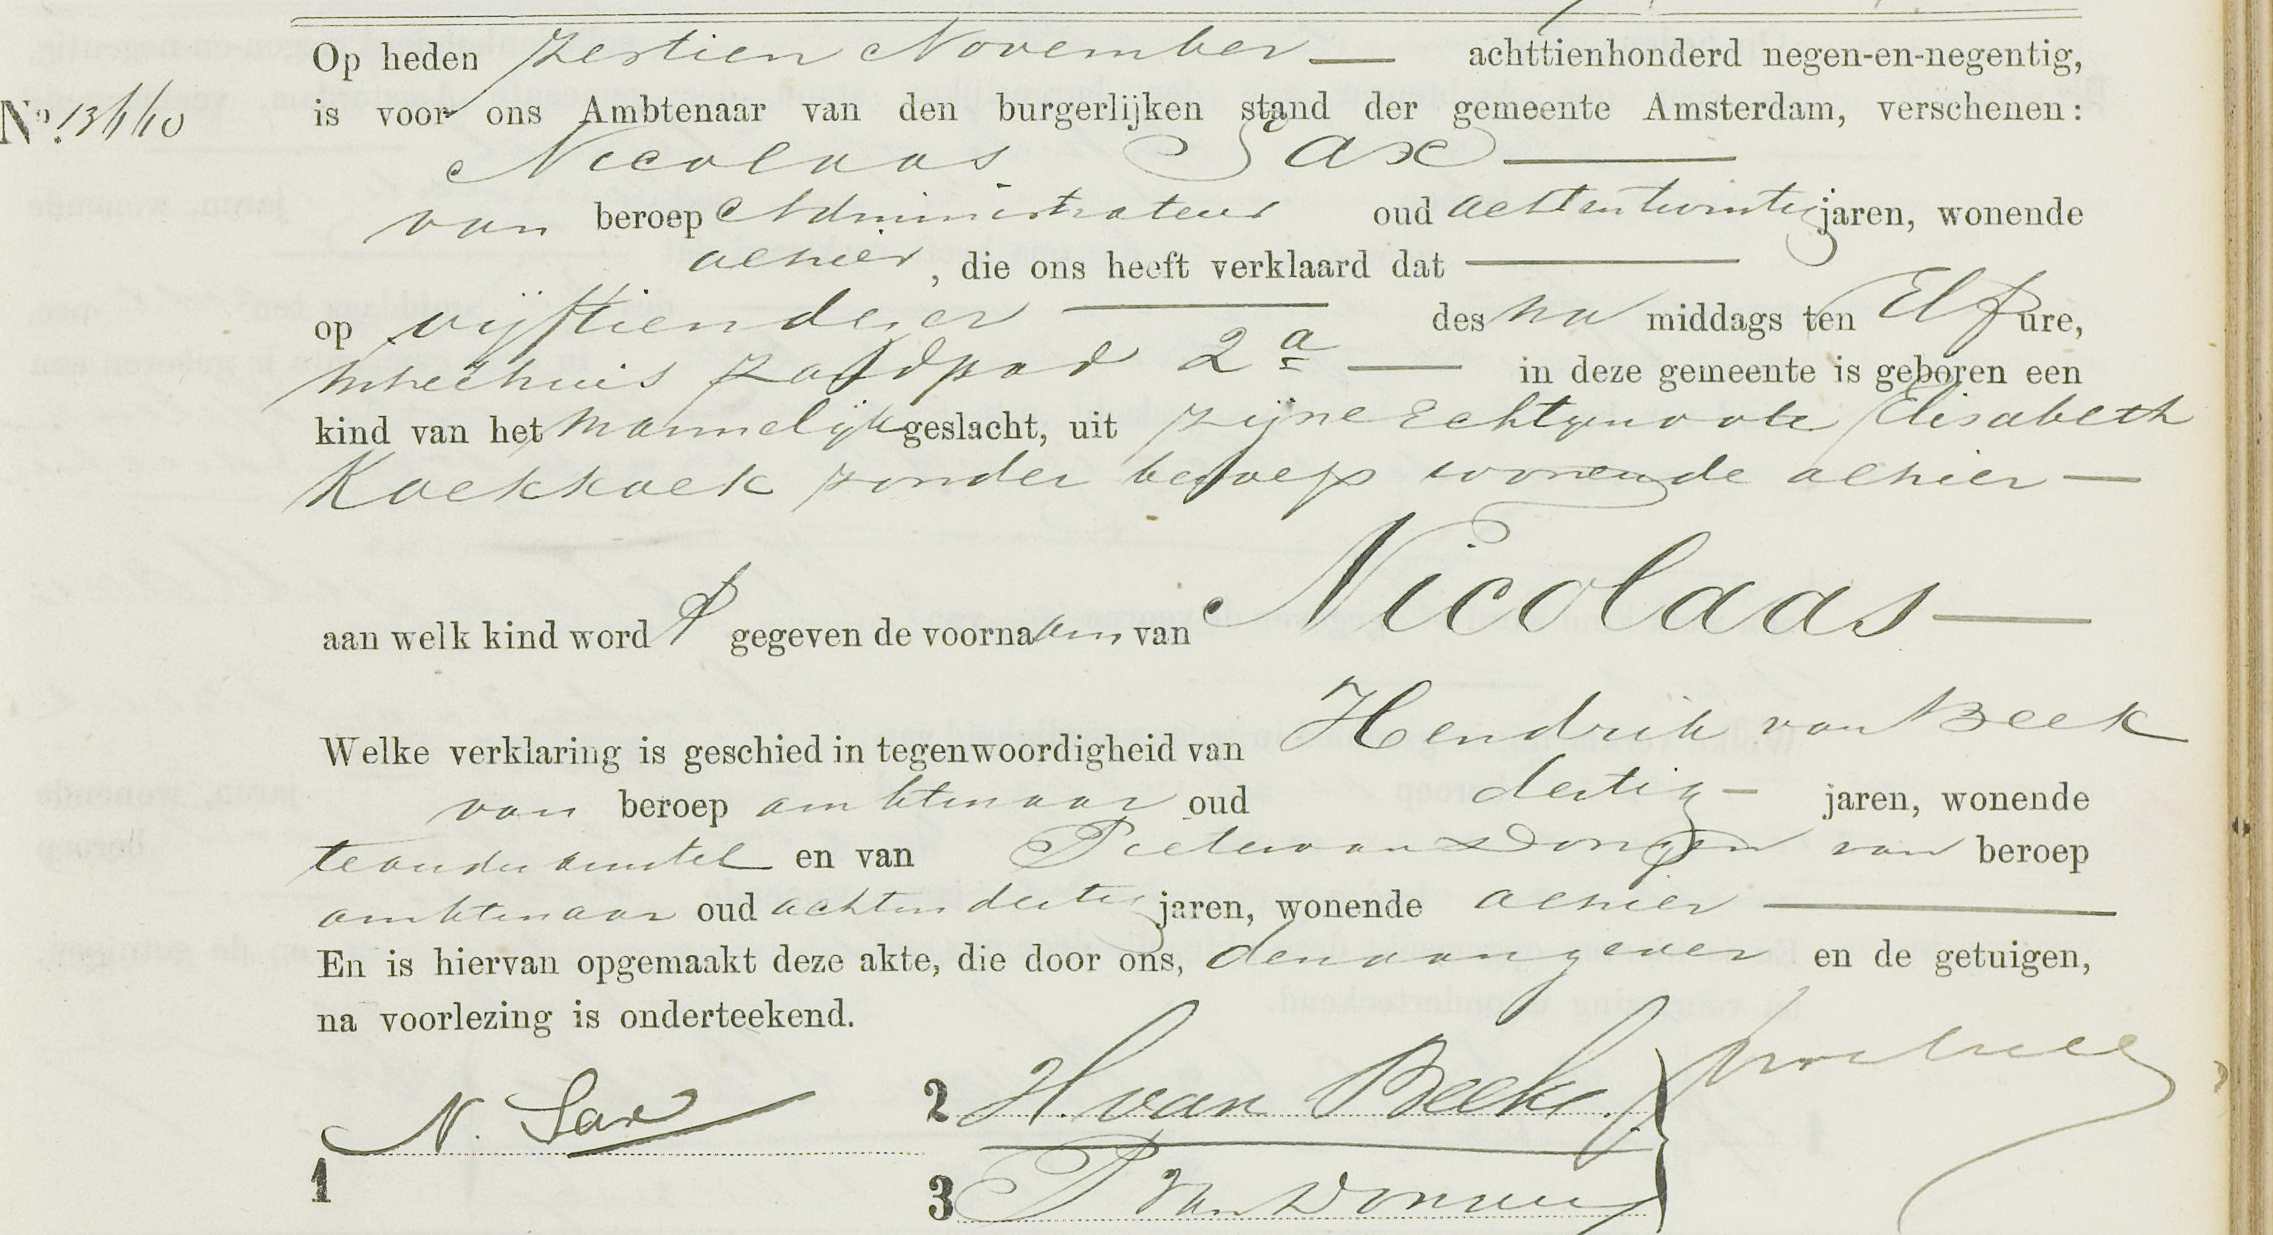 Op heden zestien November — achttienhonderd negen-en-negentig,
No. 13440
is voor ons Ambtenaar van den burgerlijken stand der gemeente Amsterdam, verschenen:
Nicolaas Sax —
van beroep Administrateur oud achtentwintig jaren, wonende
alhier, die ons heeft verklaard dat —
op vijftiendezer — des na middags ten Elf ure,
in het huis Zaagpad 2a — in deze gemeente is geboren een
kind van het mannelijk geslacht, uit zijne Echtgenoote Elisabeth
Koekkoek zonder beroep wonende alhier —
aan welk kind wordt gegeven de voornaam van Nicolaas —
Welke verklaring is geschied in tegenwoordigheid van Hendrik van Beek
van beroep ambtenaar oud dertig — jaren, wonende
te ouder amstel en van Pieter van Dongen van beroep
ambtenaar oud achtendertig jaren, wonende alhier —
En is hiervan opgemaakt deze akte, die door ons, den aangever en de getuigen,
na voorlezing is onderteekend.
1 N. Sax
2 H. van Beek
3 P van Dongen